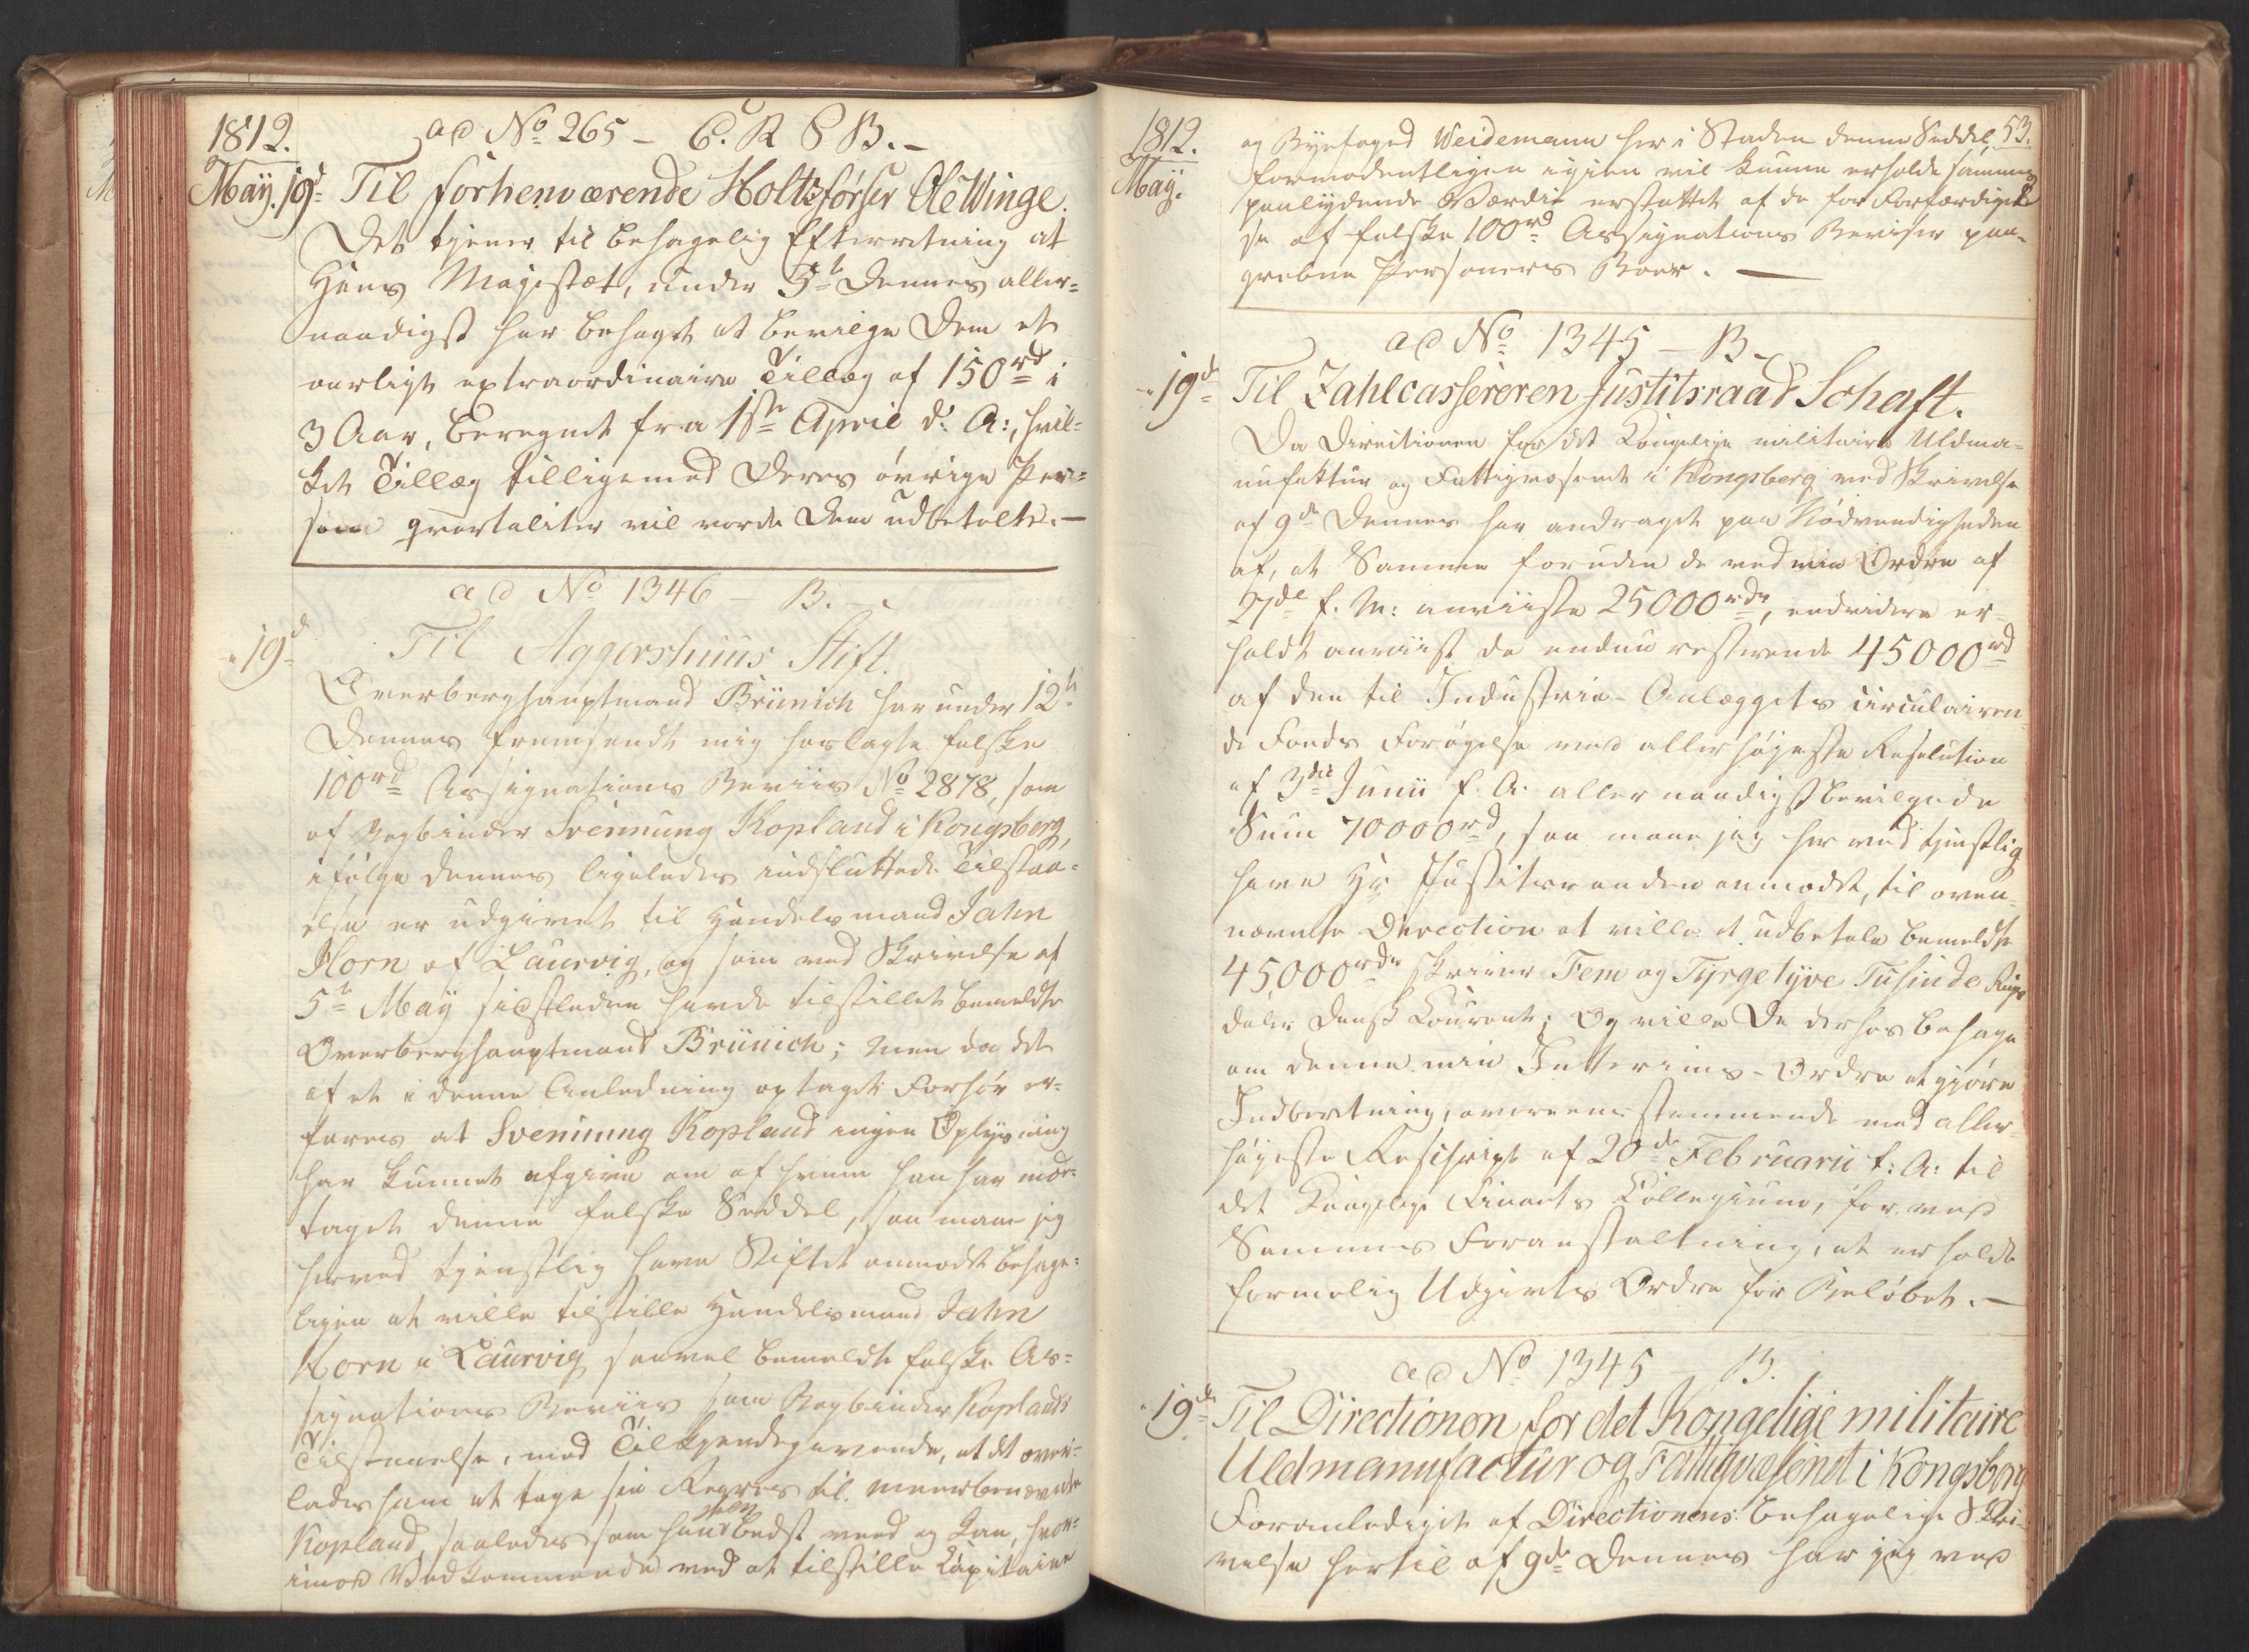 1812.
ad No 265 - C. R. S. B. -
Maÿ. 19d Til forhenværende Holtzførster Ole Winge.
Det tjener til behagelig Efterretning at
Hans Majestæt, under 5te Dennes aller-
naadigst har behaget at bevilge Dem et
aarligt extraordinaire Tillæg af 150rd i
3 Aar, beregnet fra 1ste April d: A:, hvil-
ket Tillæg tilligemed Deres øvrige
qvartaliter vil vorde Dem udbetalte. -
ad No 1346 - B. -
" 19d Til Aggershuus Stift.
Overberghauptmand Brünich har under 12te
Dennes fremsendt mig hoslagte falske
100rd Assignations Beviis No 2878, som
af Bogbinder Svennung Kopland i Kongsberg,
ifølge dennes ligeledes indsluttede Tilstaa-
else er udgivet til Handelsmand Jahn
Horn af Laurvig, og som ved Skrivelse af
5te Maÿ sidstleden havde tilstillet bemeldte
Overberghauptmand Brünich; men da det
af et i denne Anledning optaget Forhør er-
fares at Svennung Kopland ingen Oplysning
har kunnet afgive om af hvem han har mod-
taget denne falske Seddel, saa maae jeg
herved tjenstlig have Stiftet anmodet behage-
ligen at ville tilstille Handelsmand Jahn
Horn i Laurvig saavel bemeldte falske As-
signations Beviis som Bogbinder Koplands
Tilstaaelse, med Tilkjendegivende, at det over-
lades ham at tage sin Regres til meerbenævnte
Kopland, saaledes som han selv bedst veed og kan, hvor-
imod Vedkommende ved at tilstille Capitaine
1812.
Maÿ.
53.
og Byefoged Weidemann her i Staden denne Seddel,
formodentligen igien vil kunne erholde sammes
paalydende Værdie erstattet af de for Forfærdigel-
se af falske 100rd Assignations Beviser paa-
grebne Personers Boer. -
ad No 1345 - B -
" 19de Til Zahlcassereren Justitsraad Schaft.
Da Directionen for det Kongelige militaire Uldma-
nufaktur og Fattigvæsenet i Kongsberg ved Skrivelse
af 9de Dennes har andraget paa Nødvendigheden
af, at Samme foruden de ved min Ordre af
27de f. M: anviiste 25000rdr, endvidere er-
holdt anviist de endnu resterende 45000rd
af den til Industrie-Anlæggets circulairen-
de Fonds Forøgelse ved allerhøjeste Resolution
af 3die Junii f. A. allernaadigst bevilgede
Sum 70000rd, saa maae jeg herved tjenstlig
have Hr Justitsraaden anmodet, til oven-
nævnte Direction at ville ud udbetale bemeldte
45,000rdr skriver Fem og Fyrgetyve Tusinde Rigs
daler Dansk Courant; Og ville De derhos behage
om denne min Interims-Ordre at gjøre
Indberetning, overeensstemmende med aller-
højeste Rescript af 20de Februarii f: A: til
det Kongelige Finants Collegium, for ved
Sammes Foranstaltning, at erholde
formelig Udgivts Ordre for Beløbet. -
ad No 1345 - B.
" 19de Til Directionen for det Kongelige militaire
Uldmanufactur og Fattigvæsenet i Kongsberg
Foranlediget af Directionens behagelige Skri-
velse hertil af 9de Dennes har jeg ved